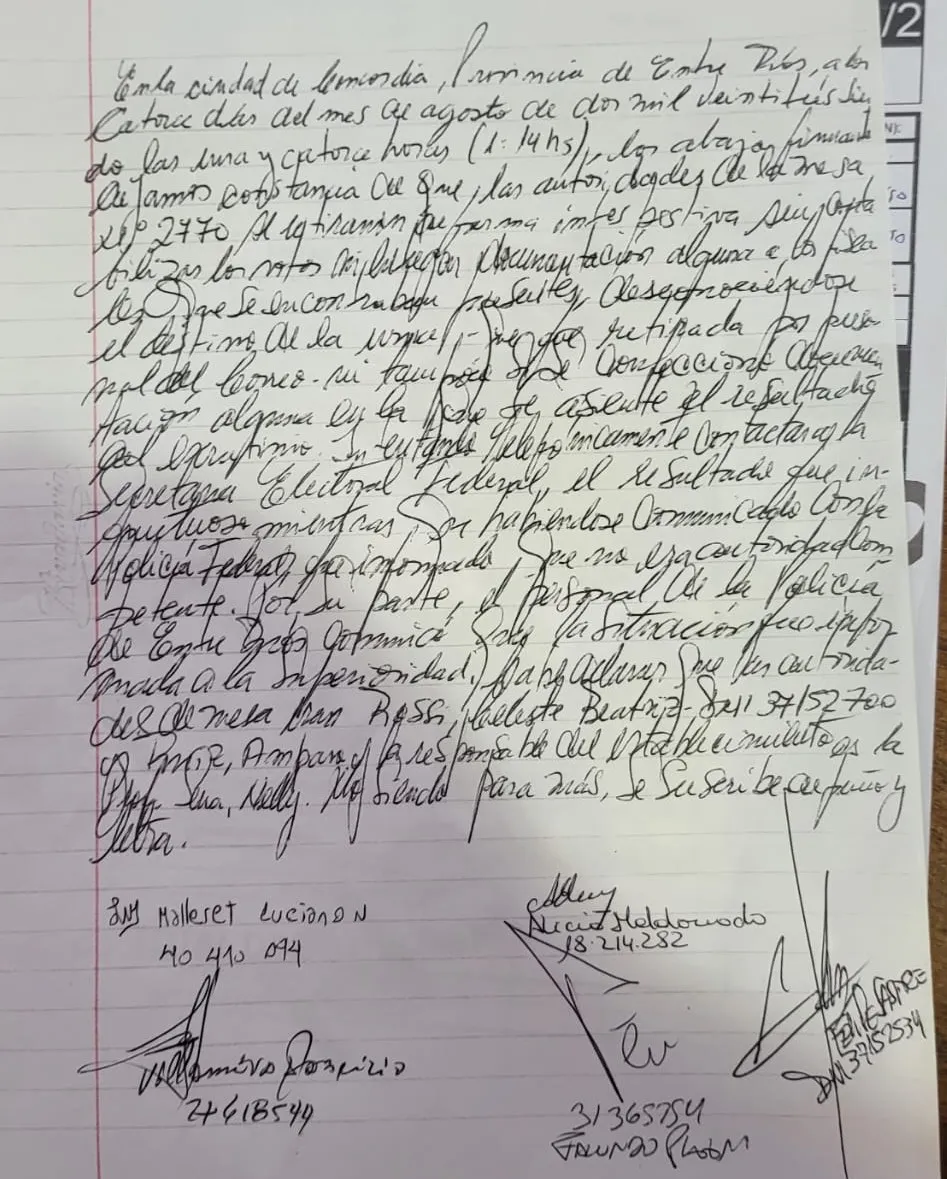 /2
En la ciudad de Concordia, Provincia de Entre Ríos, a los
Catorce días del mes de agosto de dos mil veintitrés sien
do las una y catorce horas (1:14 hs), los abajo firmante
dejamos constancia de que, las autoridades de la mesa
Nº 2770 se retiraron de forma intespestiva sin conta
bilizar los votos ni entregar documentación alguna a los fisca
les que se encontraban presentes, desconociéndose
el destino de la urna, que fue retirada por perso
nal del Correo. ni tampoco se confeccionó documen
tación alguna en la que se asiente el resultado
del escrutinio. Se intentó telefónicamente contactar a la
Secretaria Electoral Federal, el resultado fue in-
fructuoso mientras que habiéndose comunicado con la
Policía Federal, fue informado que no era autoridad com
petente. Por su parte, el personal de la Policía
de Entre Ríos comunicó que la situación fue infor
mada a la superioridad. Cabe aclarar que las autorida-
des de mesa eran Rossi, Celeste Beatriz - DNI 37152700
y Amparo y la responsable del establecimiento es la
Prof. Nelly. No siendo para más, se suscribe de puño y
letra.
Malleret Luciano N
40 410 094
Alicia Maldonado
18.214.282
27618544
31365754
Facundo
DNI 37152534